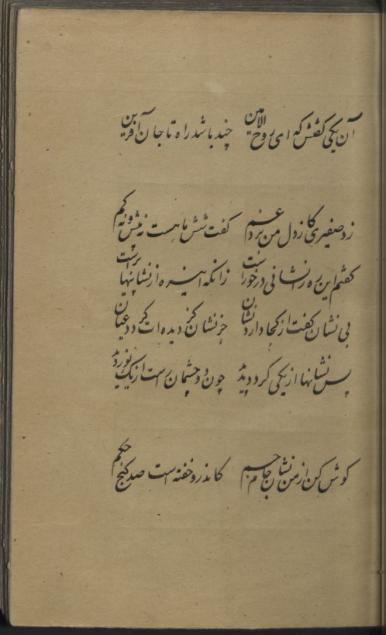 آن یکی گفتش که ای روح الامین چند باشد راه تا جان آفرین
زد صفیری کز دل من برد غم گفت شش ماهست نه بیش و نه کم
گفتم این ره را نشانی درخورست زانکه این ره از نشانیها برست
بی نشان گفت از کجا دارد نشان جز نشان کز دیده ات گردد عیان
پس نشانها از یکی کرد و پدید چون دو چشمان است از یک
گوش کن از من نشان جام جم کاندرو خفته است صد گنج حکم